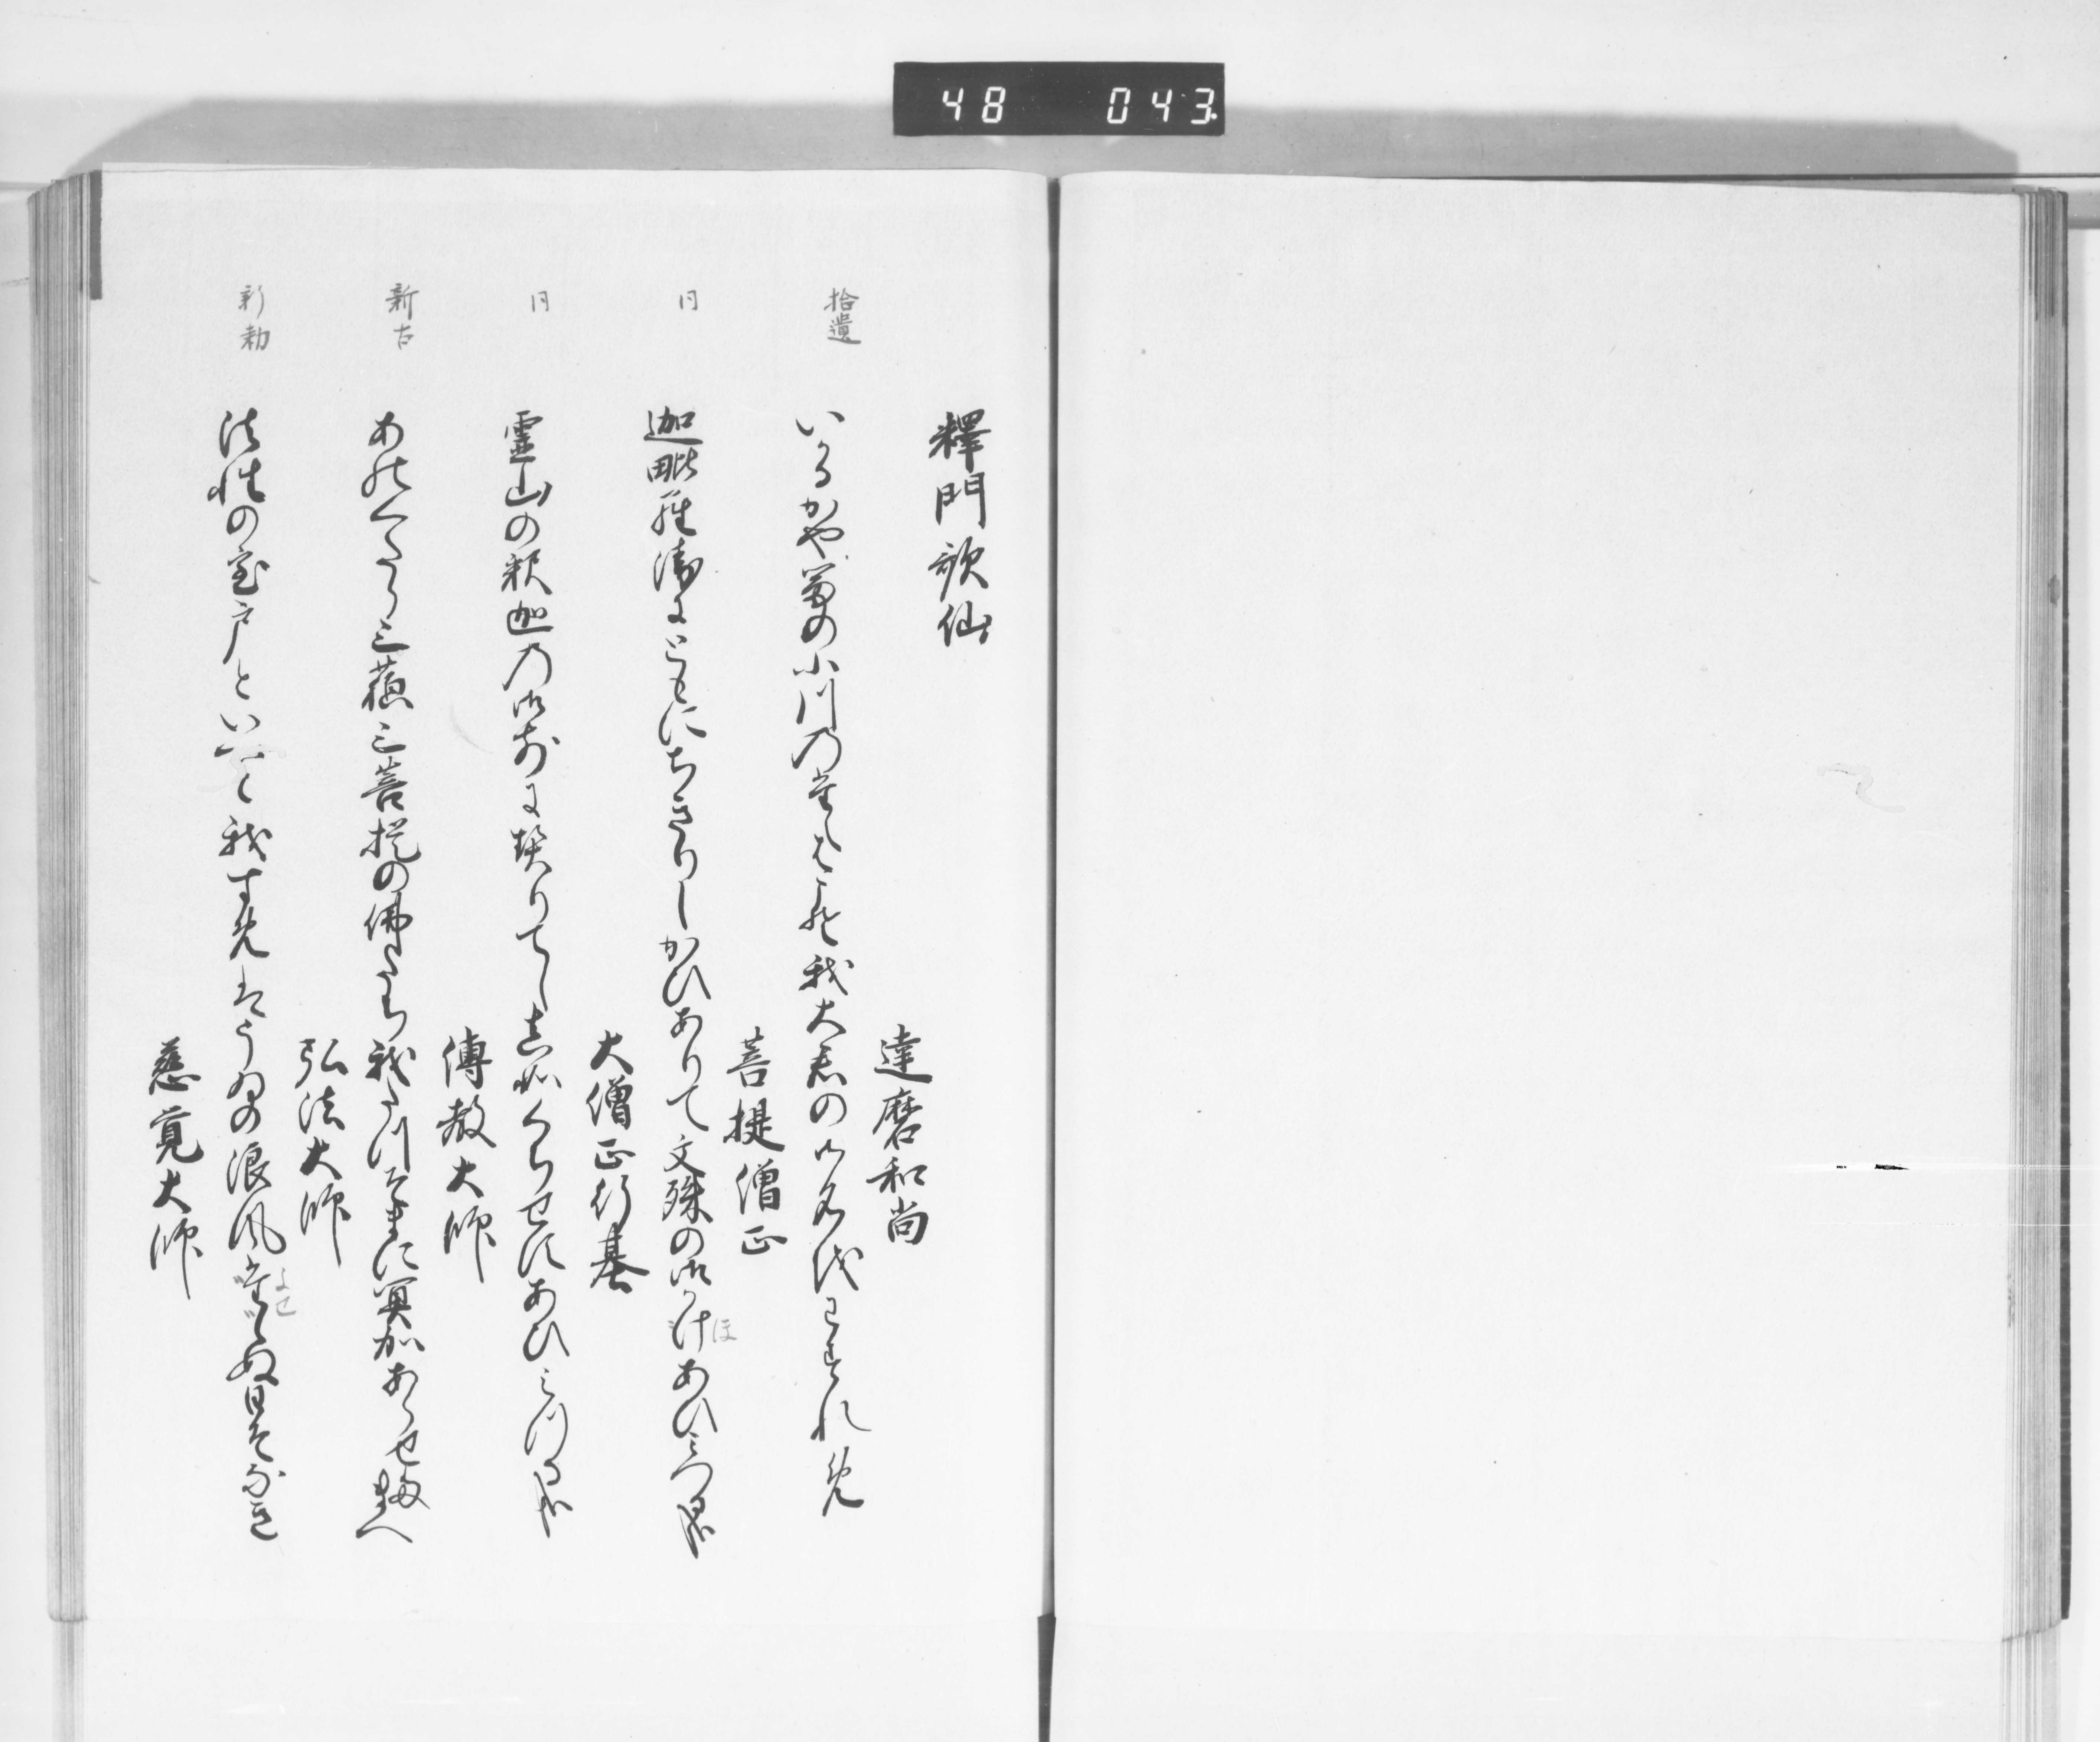 48 043
釋門歌仙
達磨和尚
拾遺
いかるかや冨の小川乃たえはこそ我大君の御名をわすれめ
菩提僧正
同
迦毗羅衛にともにちきりしかひありて文殊の御かけあひみつる哉
ほ
大僧正行基
同
霊山の釈迦乃御前に契りてし真如くちせすあひみつる哉
傳教大師
新古
あのくたら三藐三菩提の佛たち我たつそまに冥加あらせ給へ
弘法大師
新勅
法性の室戸といへと我すめはうゐの浪風たゝぬ日そなき
よせ
慈覚大師